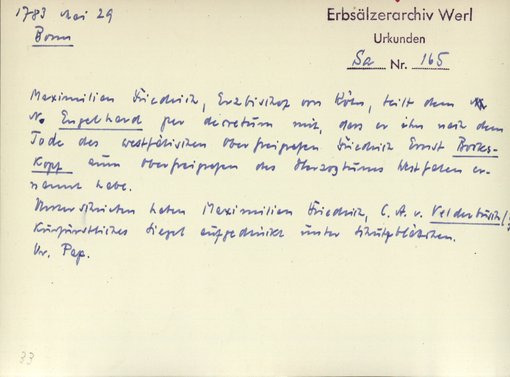 1783 Mai 29
Bonn
Erbsälzerarchiv Werl
Urkunden
Sa Nr. 165
Maximilian Friedrich, Erzbischof von Köln, teilt dem
N. Engelhard per decretum mit, dass er ihn nach dem
Tode des westfälischen Oberfreigrafen Friedrich Ernst Boots-
Kopf zum Oberfreigrafen des Herzogtums Westfalen er-
nannt habe.
Unterschrieben haben Maximilian Friedrich, C. A. v. Velderbusch
Kurfürstliches Siegel aufgedrückt unter Schutzblättchen.
Ur. Pap.
33